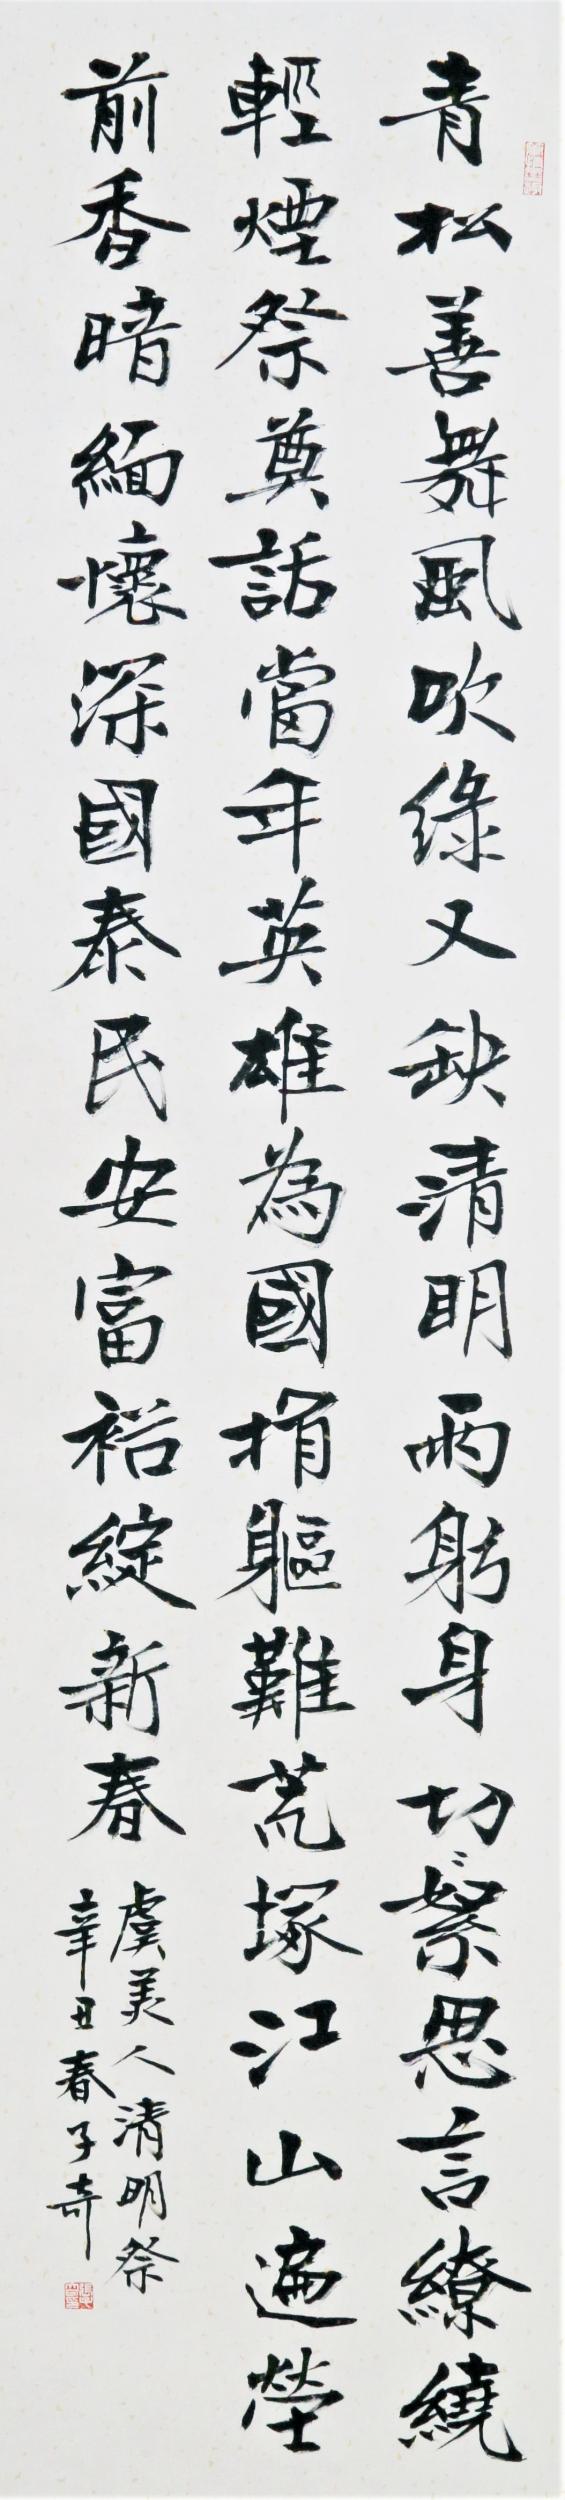 青松善舞風吹綠又缺清明雨躬身切〻縈思言繚繞
輕煙祭奠話當年英雄為國捐軀難荒塚江山遍塋
前香暗緬懷深國泰民安富裕綻新春
虞美人清明祭
辛丑春子奇